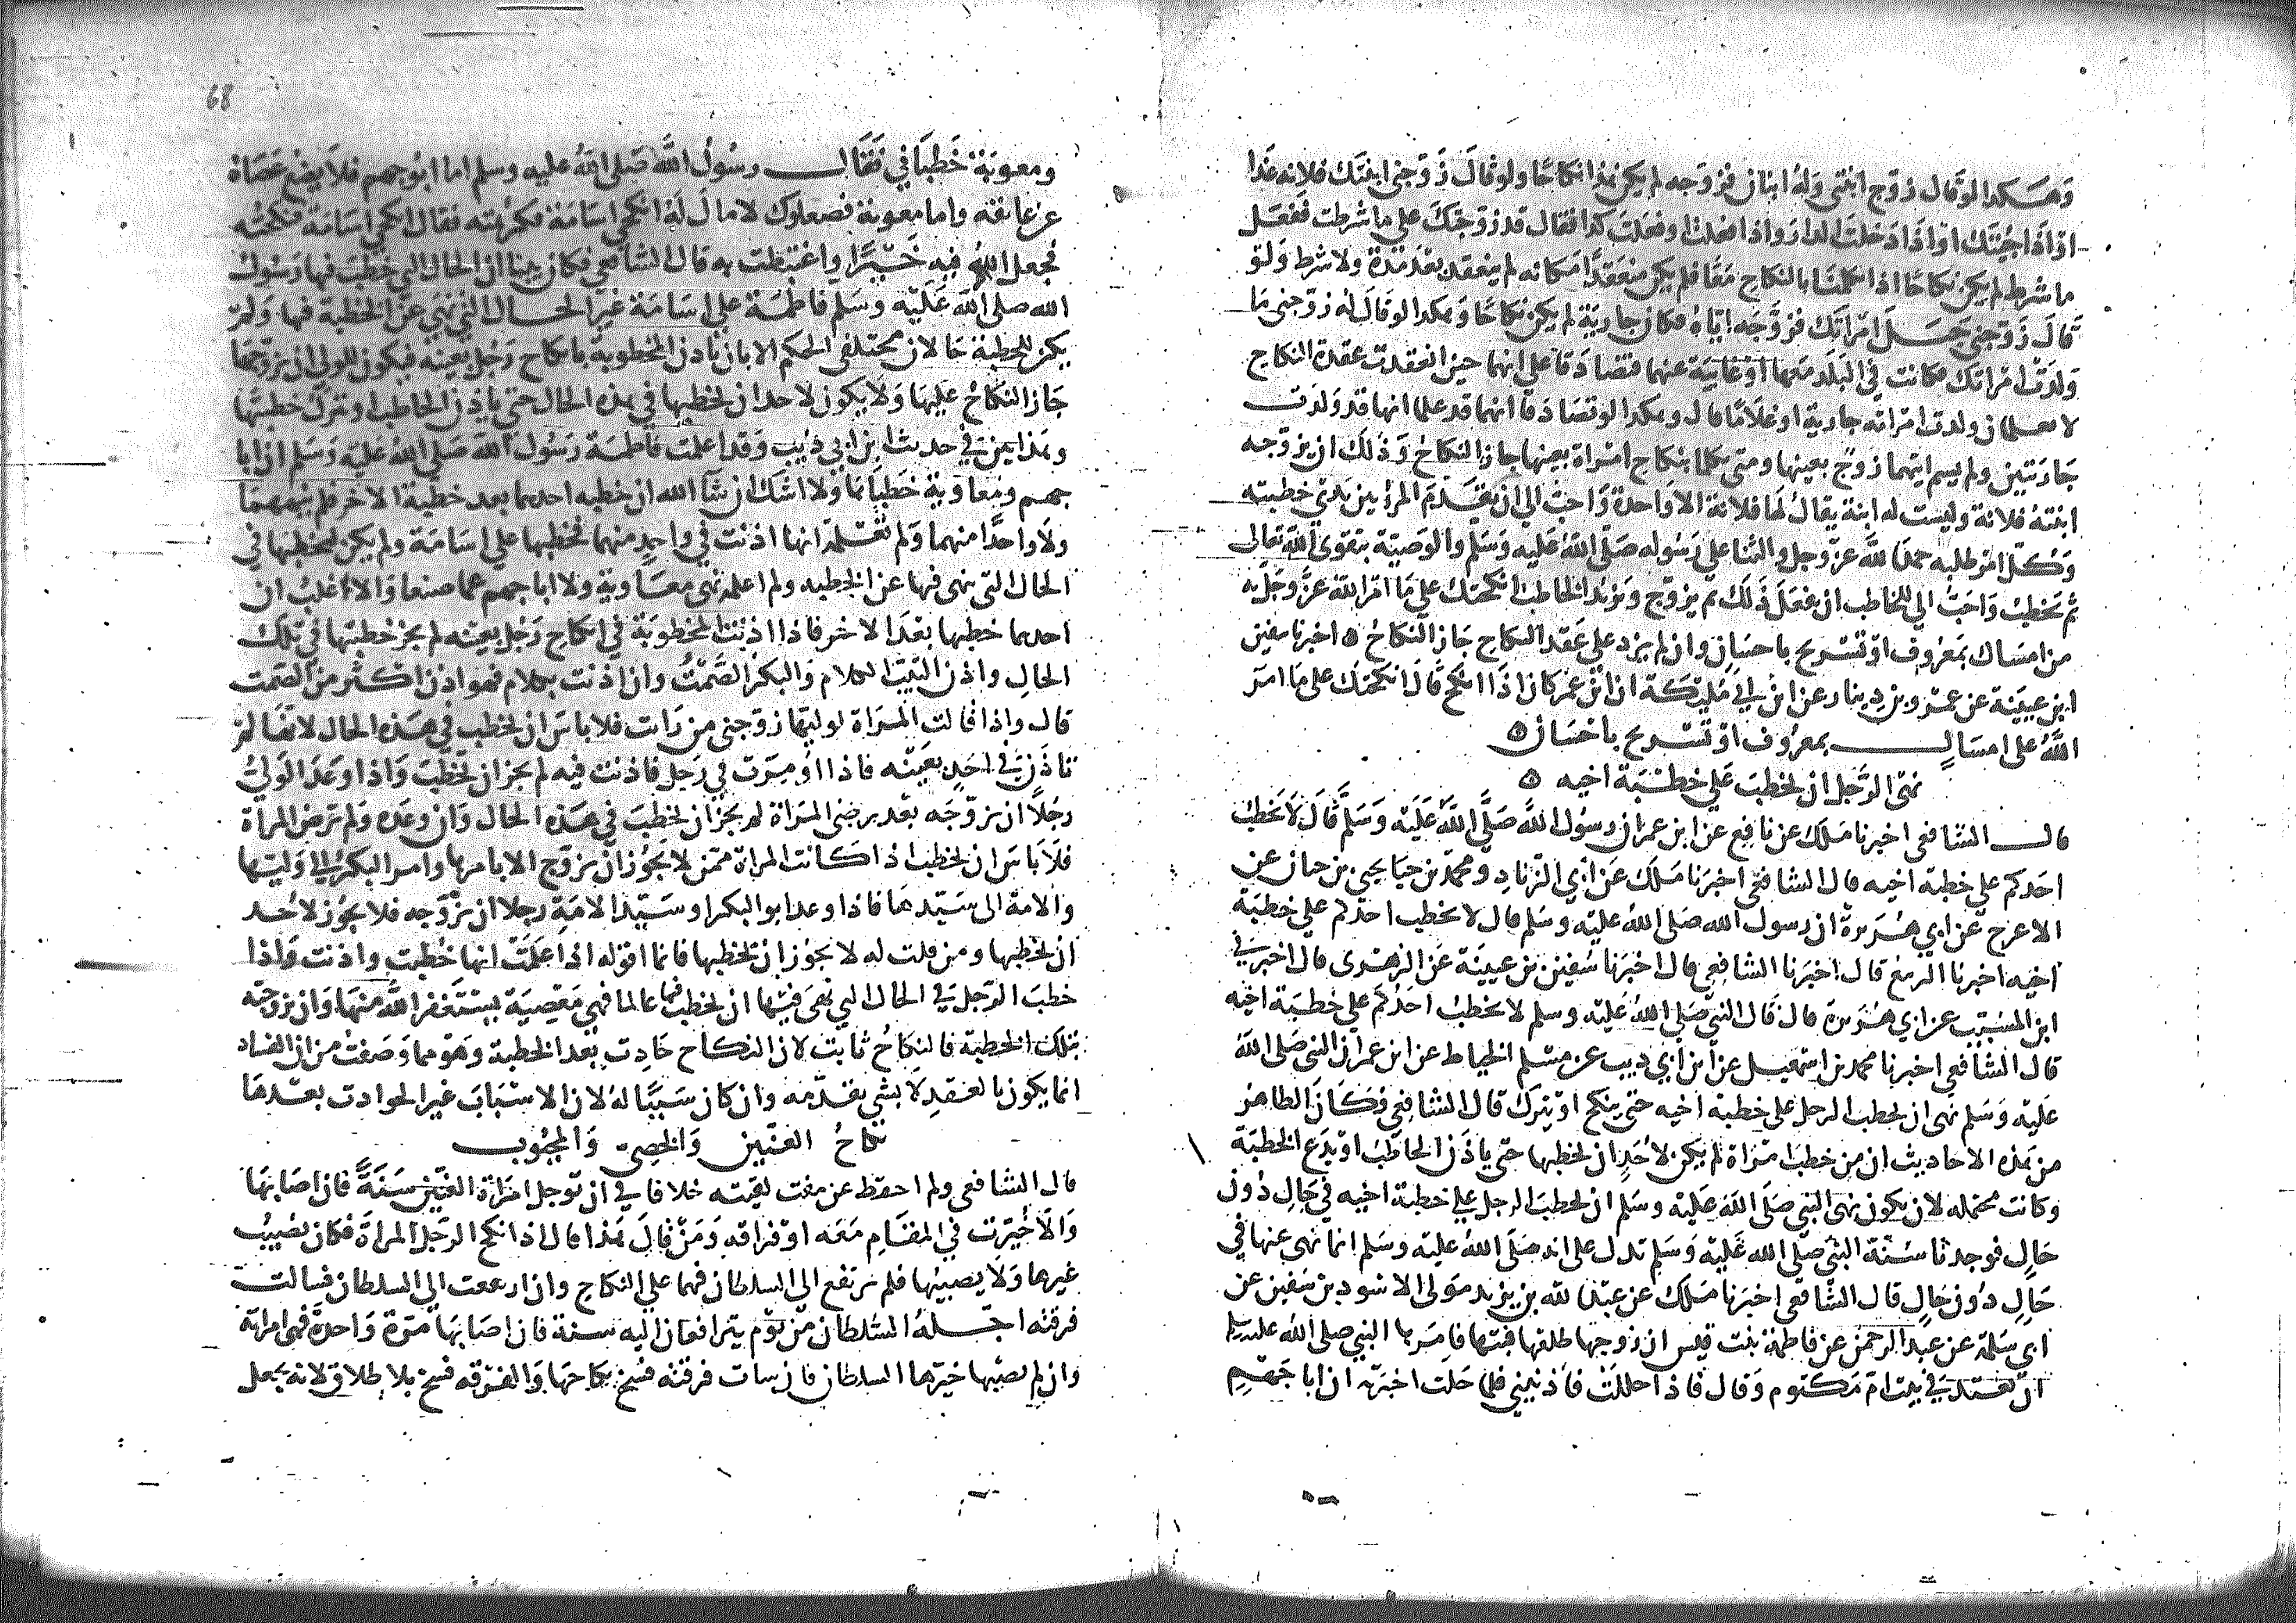 وهكذا لو قال زوج ابنتى وله ابنتان فزوجه لم يكن هذا نكاحا ولو قال زوجنى ابنتك فلانه غدا
او اذا جئتك او اذا دخلت الدار او اذا فعلت او فعلت كذا فقال قد زوجتك على ما شرطت ففعل
ما شرط لم يكن نكاحا اذا تكلما بالنكاح معا فلم يكن منعقدا مكانه لم ينعقد بعد مدة ولا شرط ولو
قال زوجنى حبل امراتك فزوجه اياه فكان جارية لم يكن نكاحا وهكذا لو قال له زوجنى ما
ولدت امراتك فكانت في البلد معهما او غايبة عنهما فتصادقا على انهما حين انعقدت عقدة النكاح
لا يعلمان ولدت امراته جارية او غلاما قال وهكذا لو تصادقا انهما قد علما انها قد ولدت
جاريتين ولم يسم ايتهما زوج بعينها ومتى تكلما بنكاح امراة بعينها جاز النكاح وذلك ان يزوجه
ابنته فلانة وليست له ابنة يقال لها فلانة الا واحدة واحب الي ان يقدم المرء بين يدي خطبته
وكل امر طلبه حمد الله عز وجل والثنا على رسوله صلى الله عليه وسلم والوصية بتقوى الله تعالى
ثم يخطب واحب الى للخاطب ان يفعل ذلك ثم يزوج ويزيد الخاطب انكحتك على ما امر الله عز وجل به
من امساك بمعروف او تسريح باحسان وان لم يزد على عقد النكاح جاز النكاح ه اخبرنا سفين
ابن عيينة عن عمرو بن دينار عن ابن ابي مليكة ان ابن عمر كان اذا انكح قال انكحتك على ما امر
الله على امساك بمعروف او تسريح باحسان ه
نهى الرجل ان يخطب على خطبة اخيه ه
قال الشافعى اخبرنا ملك عن نافع عن ابن عمر ان رسول الله صلى الله عليه وسلم قال لا يخطب
احدكم على خطبة اخيه قال الشافعى اخبرنا ملك عن ابي الزناد ومحمد بن حيا يحيى بن حبان عن
الاعرج عن ابي هريرة ان رسول الله صلى الله عليه وسلم قال لا يخطب احدكم على خطبة
اخيه اخبرنا الربيع قال اخبرنا الشافعى قال اخبرنا سفين بن عيينة عن الزهرى قال اخبرني
ابن المسيب عن ابي هريرة قال قال النبي صلى الله عليه وسلم لا يخطب احدكم على خطبة اخيه
قال الشافعي اخبرنا محمد بن اسمعيل عن ابن ابي ذيب عن مسلم الخياط عن ابن عمر ان النبي صلى الله
عليه وسلم نهى ان يخطب الرجل على خطبة اخيه حتى ينكح او يترك قال الشافعي وكان الظاهر
من هذه الاحاديث ان من خطب امراة لم يكن لاحد ان يخطبها حتى ياذن الخاطب او يدع الخطبة
وكانت محتمله لان يكون نهى النبي صلى الله عليه وسلم ان يخطب الرجل على خطبة اخيه في حال دون
حال فوجدنا سنة النبي صلى الله عليه وسلم تدل على انه صلى الله عليه وسلم انما نهى عنها في
حال دون حال قال الشافعي اخبرنا ملك عن عبد الله بن يزيد مولى الاسود بن سفين عن
ابي سلمة عن عبد الرحمن عن فاطمة بنت قيس ان زوجها طلقها فبتها فامرها النبي صلى الله عليه وسلم
ان تعتد في بيت ام مكتوم وقال فاذا حللت فاذنيني فلما حلت اخبرته ان ابا جهم
68
ومعوية خطبانى فقال رسول الله صلى الله عليه وسلم اما ابو جهم فلا يضع عصاه
عن عاتقه واما معوية فصعلوك لا مال له انكحى اسامة فكرهته فقال انكحى اسامة فنكحته
فجعل الله فيه خيرا واغتبطت به قال الشافعى فكان بينا ان الحال التي خطب فيها رسول
الله صلى الله عليه وسلم فاطمة على اسامة غير الحال التي نهى عن الخطبة فيها ولم
يكن للخطبة حالان مختلفى الحكم الا بان تاذن المخطوبة بانكاح رجل بعينه فيكون للولى ان يزوجها
جاز النكاح عليها ولا يكون لاحد ان يخطبها في هذه الحال حتى ياذن الخاطب او يترك خطبتها
وهذا بين في حديث ابن ابي ذيب وقد اعلمت فاطمة رسول الله صلى الله عليه وسلم ان ابا
جهم ومعاوية خطباها ولا اشك ان شا الله ان خطبه احدهما بعد خطبة الاخر فلم ينههما
ولا واحدا منهما ولم نعلم انها اذنت في واحد منهما فخطبها على اسامة ولم يكن ليخطبها في
الحال التى نهى فيها عن الخطبه ولم اعلمه نهى معاوية ولا ابا جهم عما صنعا والاغلب ان
احدهما خطبها بعد الاخر فاذا اذنت المخطوبة في انكاح رجل بعينه لم يجز خطبتها في تلك
الحال واذن الثيب الكلام والبكر الصمت وان اذنت بكلام فهو اذن اكثر من الصمت
قال واذا قالت المراة لوليها زوجنى من رات فلا باس ان يخطب في هذه الحال لانها لم
تاذن في احد بعينه فاذا اومرت في رجل فاذنت فيه لم يجز ان يخطب واذا وعد الولي
رجلا ان يزوجه بعد برضى المراة لم يجز ان يخطب في هذه الحال وان وعده ولم ترض المراة
فلا باس ان يخطب اذا كانت المراة ممن لا يجوز ان يزوج الا بامرها وامر البكر الي وليها
والامة الى سيدها فاذا وعد ابو البكر او سيد الامة رجلا ان يزوجه فلا يجوز لاحد
ان يخطبها ومن قلت له لا يجوز ان يخطبها فانما اقوله اذا علمت انها خطبت واذنت واذا
خطب الرجل في الحال التي نهى فيها ان يخطب فيها عالما فهي معصية يستغفر الله منها وان تزوجته
بتلك الخطبة فالنكاح ثابت لان النكاح حادث بعد الخطبة وهو مما وصفت من ان الفساد
انما يكون بالعقد لا بشي يقدمه وان كان سببا له لان الاسباب غير الحوادث بعدها
نكاح العنين والخصى والمجبوب
قال الشافعى ولم احفظ عن مفت لقيته خلافا في ان توجل امراة العنين سنة فان اصابها
والا خيرت في المقام معه او فراقه ومن قال هذا قال اذا نكح الرجل المراة فكان يصيب
غيرها ولا يصيبها فلم ترتفع الى السلطان فهما على النكاح وان ارتفعت الى السلطان فسالت
فرقته اجله السلطان من يوم يترافعان اليه سنة فان اصابها مرة واحدة فهى امراته
وان لم يصبها خيرها السلطان فان شات فرقته فسخ نكاحها والفرقه فسخ بلا طلاق لانه يجعل